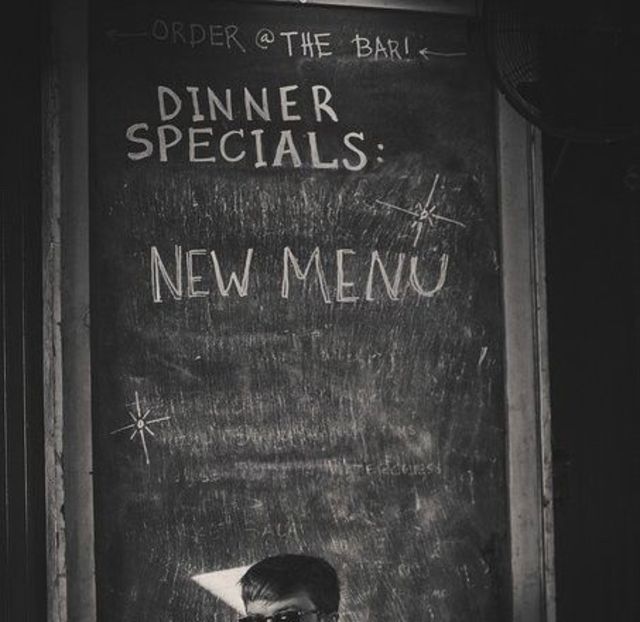 ORDER @ THE BAR!
DINNER
SPECIALS:
NEW MENU